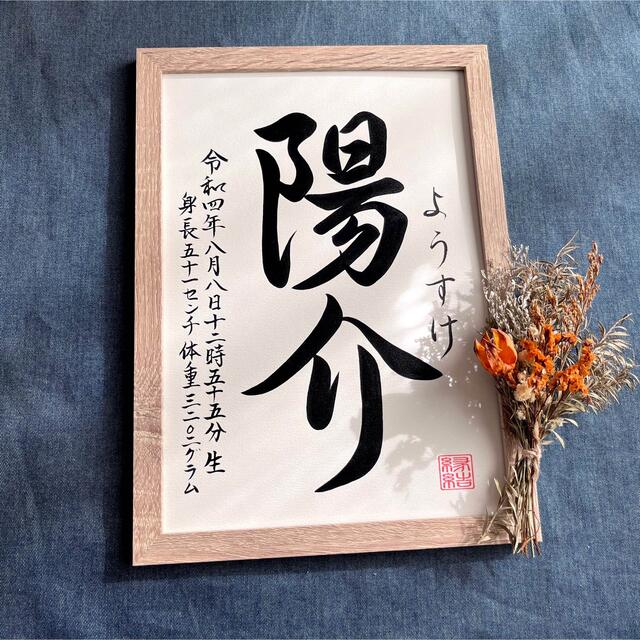 ようすけ
陽介
令和四年八月八日十二時五十五分 生
身長五十一センチ 体重三二〇二グラム
縁結